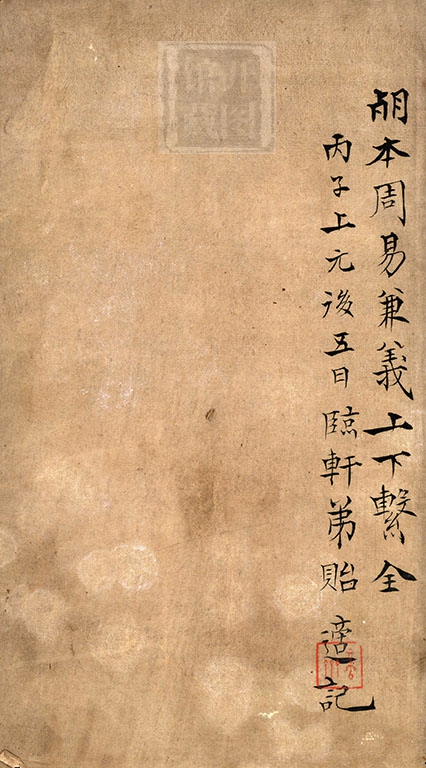 胡本周易兼義上下繫全
丙子上元後五日臨軒弟貽適記